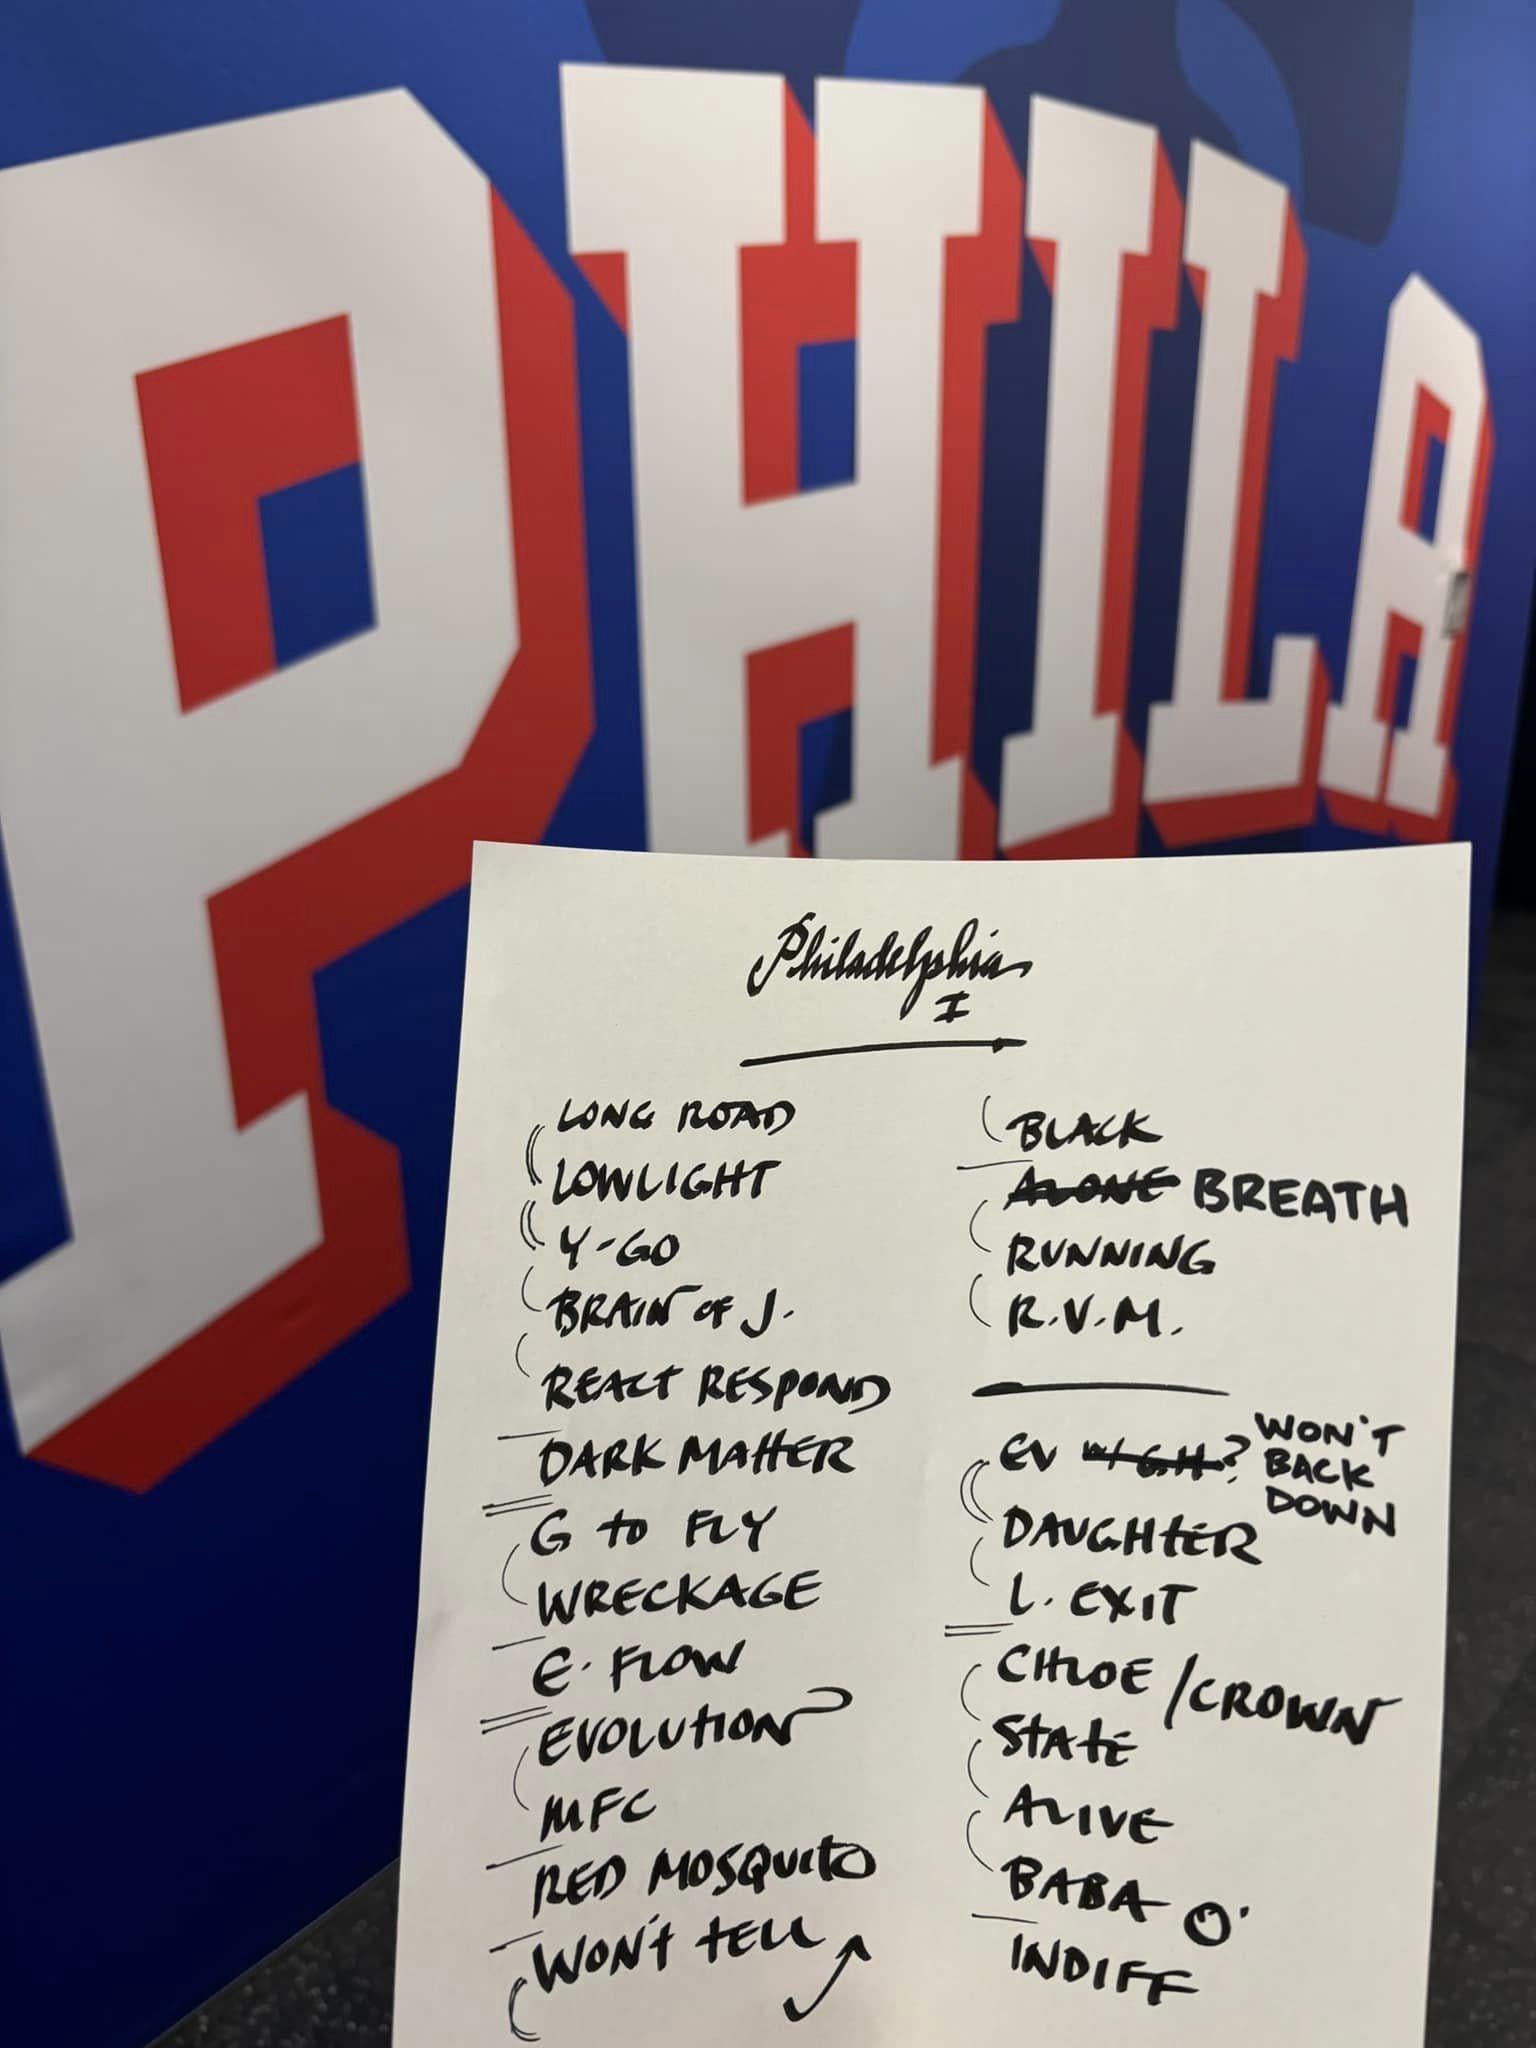 PHILA
Philadelphia
I
LONG ROAD
LOWLIGHT
Y-GO
BRAIN OF J.
REACT RESPOND
DARK MATTER
G to FLY
WRECKAGE
E. FLOW
EVOLUTION
MFC
RED MOSQUITO
WON'T TELL
BLACK
ALONE BREATH
RUNNING
R.V.M.
EV W/ G.H.? WON'T
BACK
DOWN
DAUGHTER
L. EXIT
CHLOE /CROWN
STATE
ALIVE
BABA O'
INDIFF